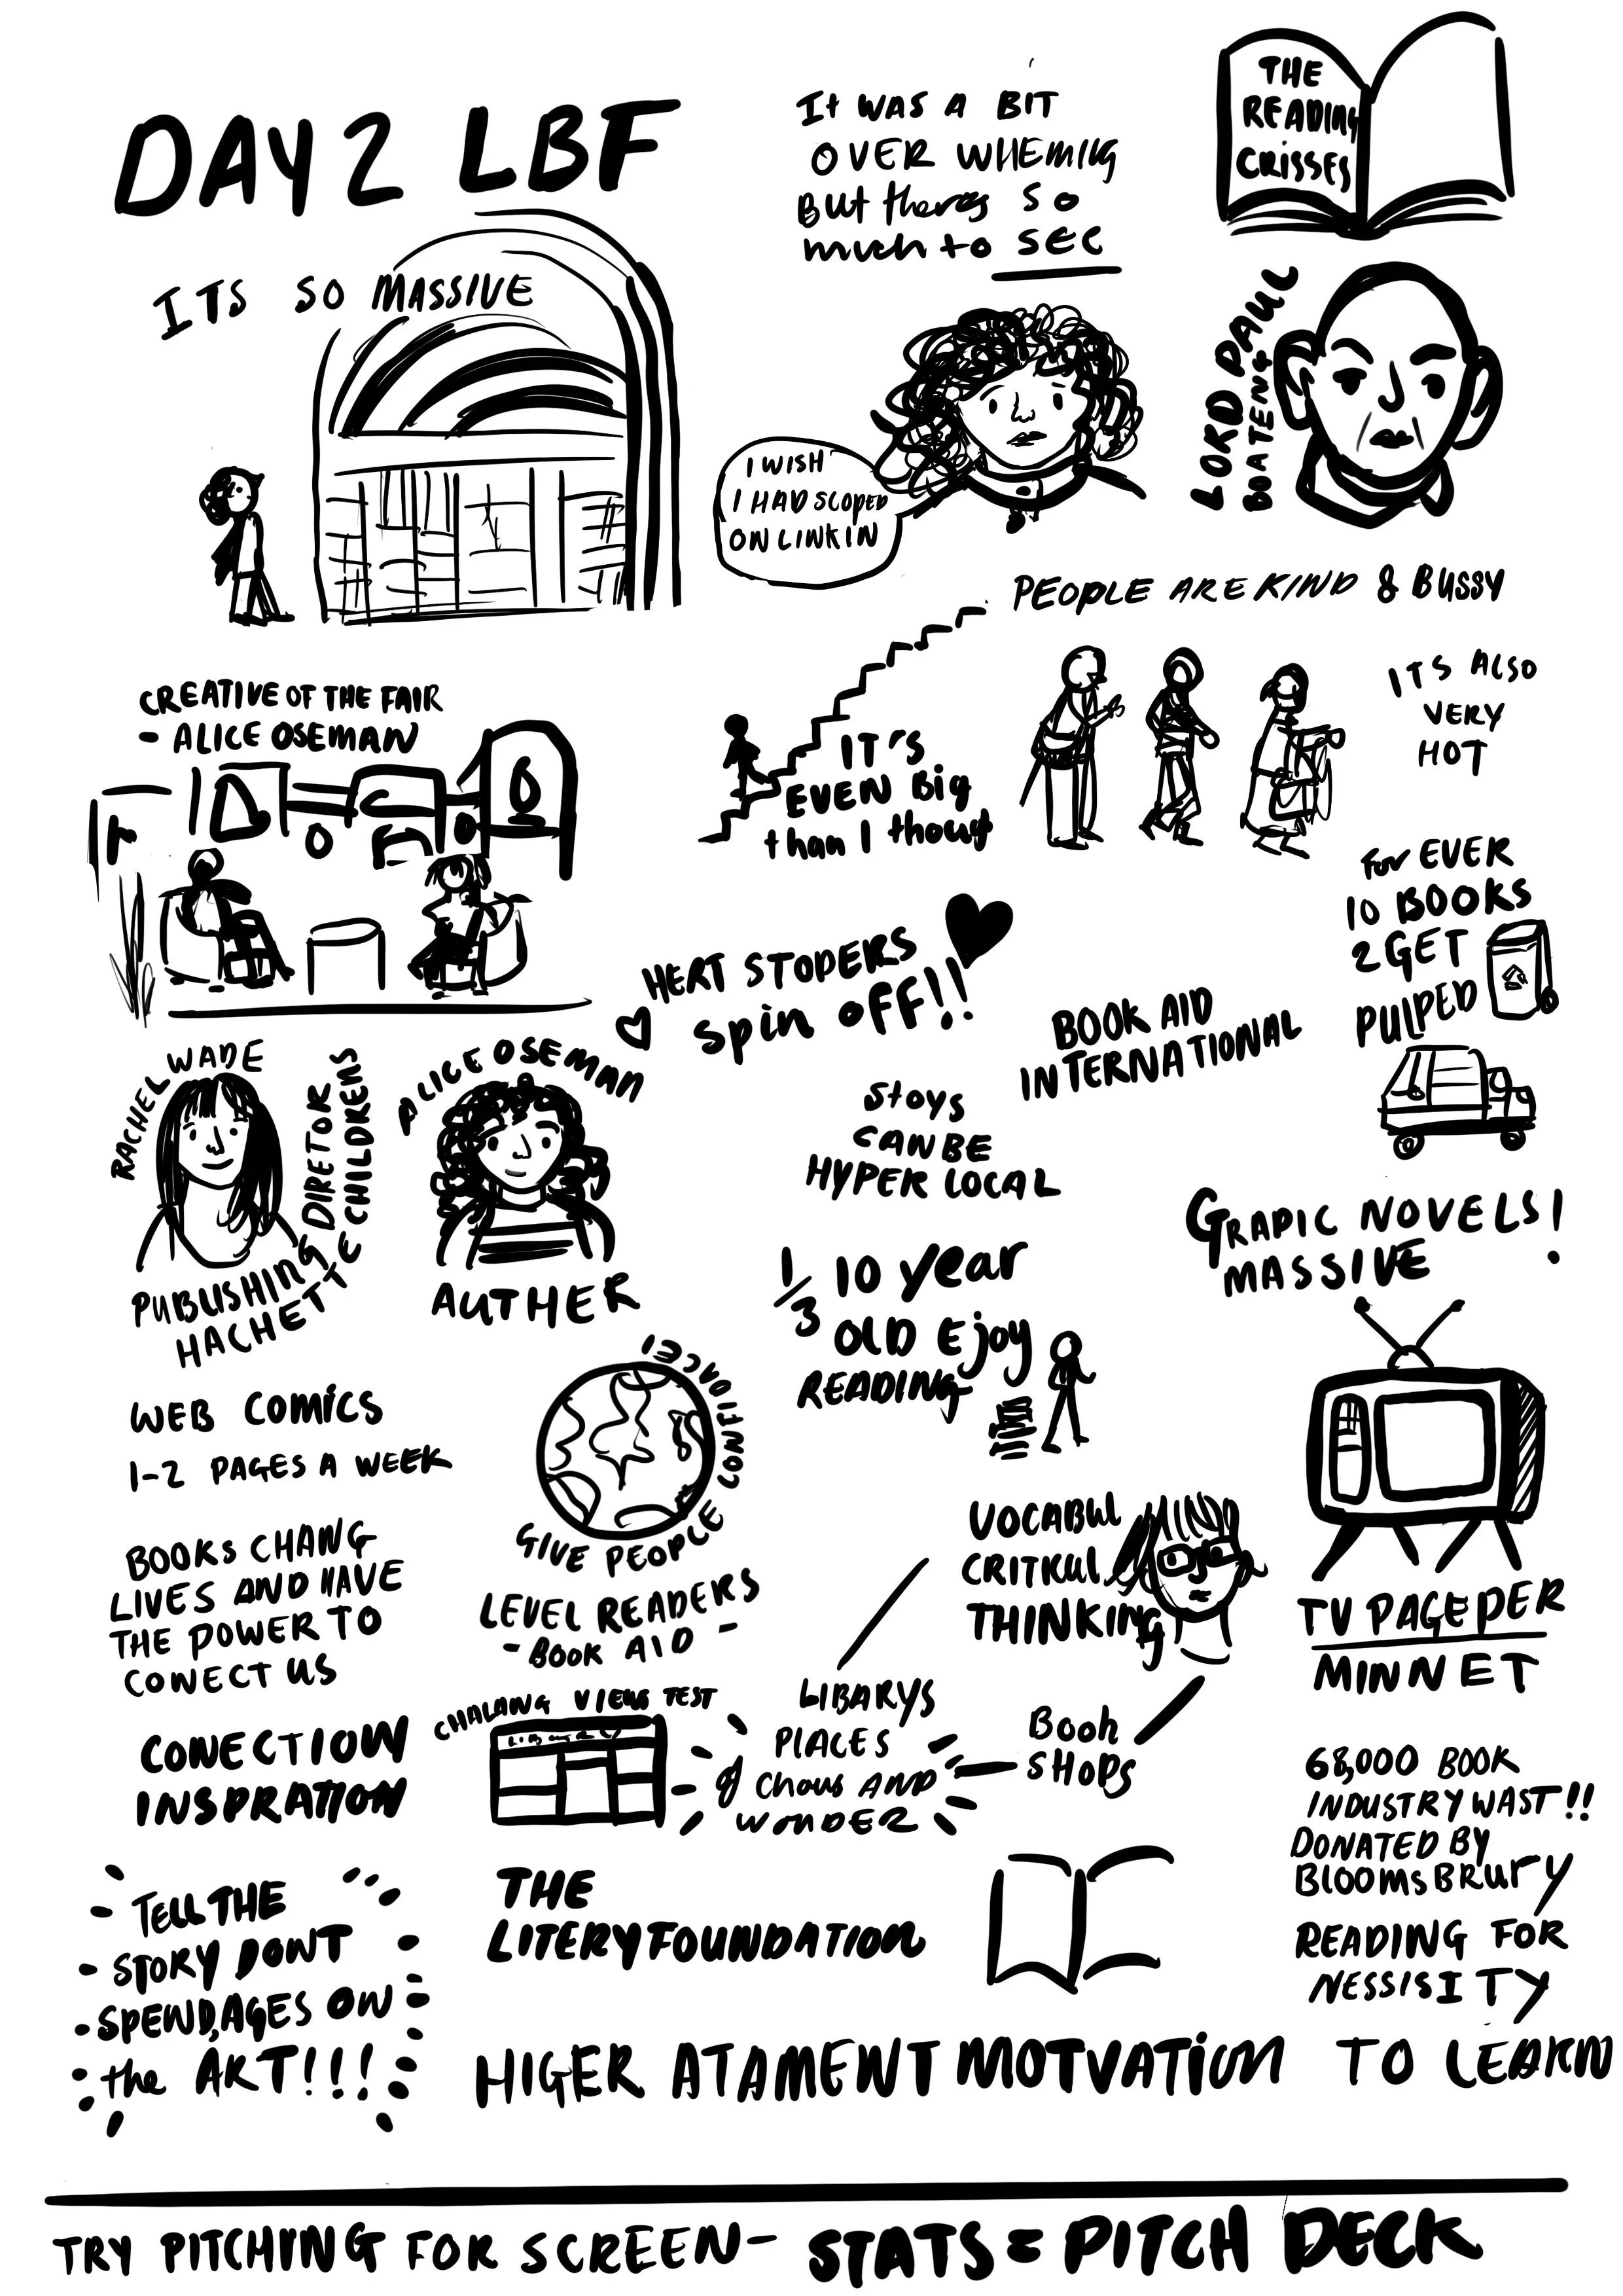 DAY 2 LBF
ITS SO MASSIVE
It WAS A BIT
OVER WHEMING
But theres so
much to SEE
THE
READING
CRISSES
LORD PAUL
BOATENG
I WISH
I HAD SCOPED
ON LINKIN
PEOPLE ARE KIND & BUSSY
ITS ALSO
VERY
HOT
CREATIVE OF THE FAIR
- ALICE OSEMAN
IT'S
EVEN Big
than I thout
for EVER
10 BOOKS
2 GET
PULPED
HERT STOPERS
spin off!!
BOOK AID
INTERNATIONAL
RACHEL WADE
PUBLISHING DIRETOR
HACHETTE CHILDRENS
ALICE OSEMAN
AUTHER
Stoys
CAN BE
HYPER LOCAL
GRAPIC NOVELS!
MASSIVE
1/3 10 year
OLD Ejoy
READING
WEB COMICS
1-2 PAGES A WEEK
GIVE PEOPLE CONFIDACE!
BOOKS CHANG
LIVES AND HAVE
THE POWER TO
CONECT US
LEVEL READERS
- BOOK AID -
VOCABUL
CRITKUL
THINKING
TV PAGE PER
MINNET
CONECTION
INSPRATION
CHALANG VIEWS TEST
LIBARYS
PLACES
of Chaus AND
WONDER
Book
SHOPS
68,000 BOOK
INDUSTRY WAST!!
DONATED BY
BLOOMSBRURY
READING FOR
NESSISITY
TELL THE
STORY DONT
SPEND AGES ON
the ART!!!
THE
LITERY FOUNDATION
HIGER ATAMENT MOTVATION TO LEARN
TRY PITCHING FOR SCREEN- STATS = PITCH DECK